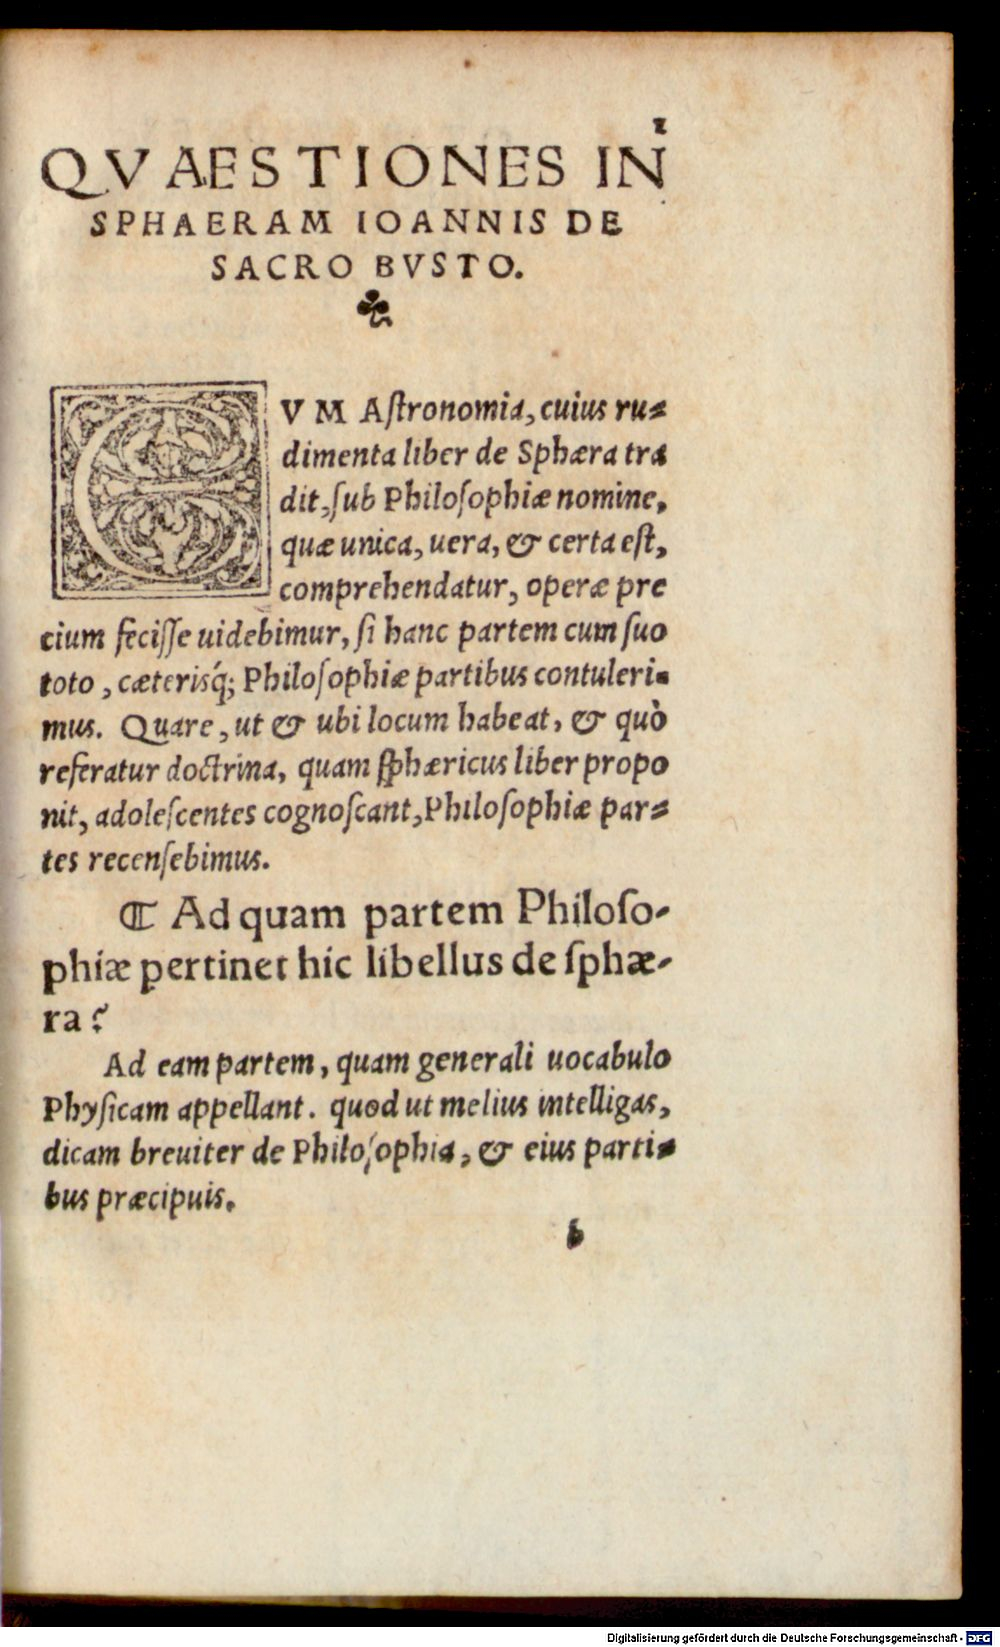 1
QVAESTIONES IN
SPHAERAM IOANNIS DE
SACRO BVSTO.
❧
CVM Astronomia, cuius ru⸗
dimenta liber de Sphæra tra
dit, ſub Philoſophiæ nomine,
quæ unica, uera, & certa eſt,
comprehendatur, operæ pre
cium feciſſe uidebimur, ſi hanc partem cum ſuo
toto, cæterisq́; Philoſophiæ partibus contuleri⸗
mus. Quare, ut & ubi locum habeat, & quò
referatur doctrina, quam ſphæricus liber propo
nit, adoleſcentes cognoſcant, Philoſophiæ par⸗
tes recenſebimus.
¶ Ad quam partem Philoſo-
phiæ pertinet hic libellus de ſphæ-
ra?
Ad eam partem, quam generali uocabulo
Phyſicam appellant. quod ut melius intelligas,
dicam breuiter de Philoſophia, & eius parti⸗
bus præcipuis.
b
Digitalisierung gefördert durch die Deutsche Forschungsgemeinschaft - DFG